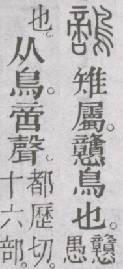 雉屬。戇鳥也。戇愚
也。从鳥。啻聲。都歷切。十六部。